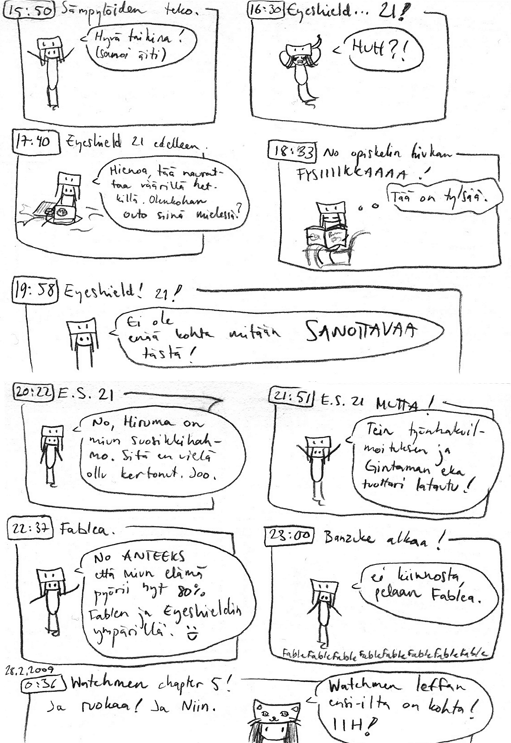 15:50 Sämpylöiden teko.
Hyvä taikina!
(sanoi äiti)
16:30 Eyeshield... 21!
HUH?!
17:40 Eyeshield 21 edelleen.
Hienoa, tää naurat-
taa väärillä het-
killä. Olenkohan
outo siinä mielessä?
18:33 No opiskelin hivkan
FYSIIIIKKAAAA!
Tää on tylsää.
19:58 Eyeshield! 21!
Ei ole
enää kohta mitään SANOTTAVAA
tästä!
20:22 E.S. 21
No, Hiruma on
miun suosikkihah-
mo. Sitä en vielä
ollu kertonut. Joo.
21:51 E.S. 21 MUTTA!
Tein työnhakuil-
moituksen ja
Gintaman eka
tuottari latautu!
22:37 Fablea.
No ANTEEKS
että miun elämä
pyörii nyt 80%
Fablen ja Eyeshieldin
ympärillä.
23:00 Banzuke alkaa!
ei kiinnosta,
pelaan Fablea.
FableFableFableFableFableFableFable
28.2.2009
0:36 Watchmen chapter 5!
Ja ruokaa! Ja Niin.
Watchmen leffan
ensi-ilta on kohta!
IIH!